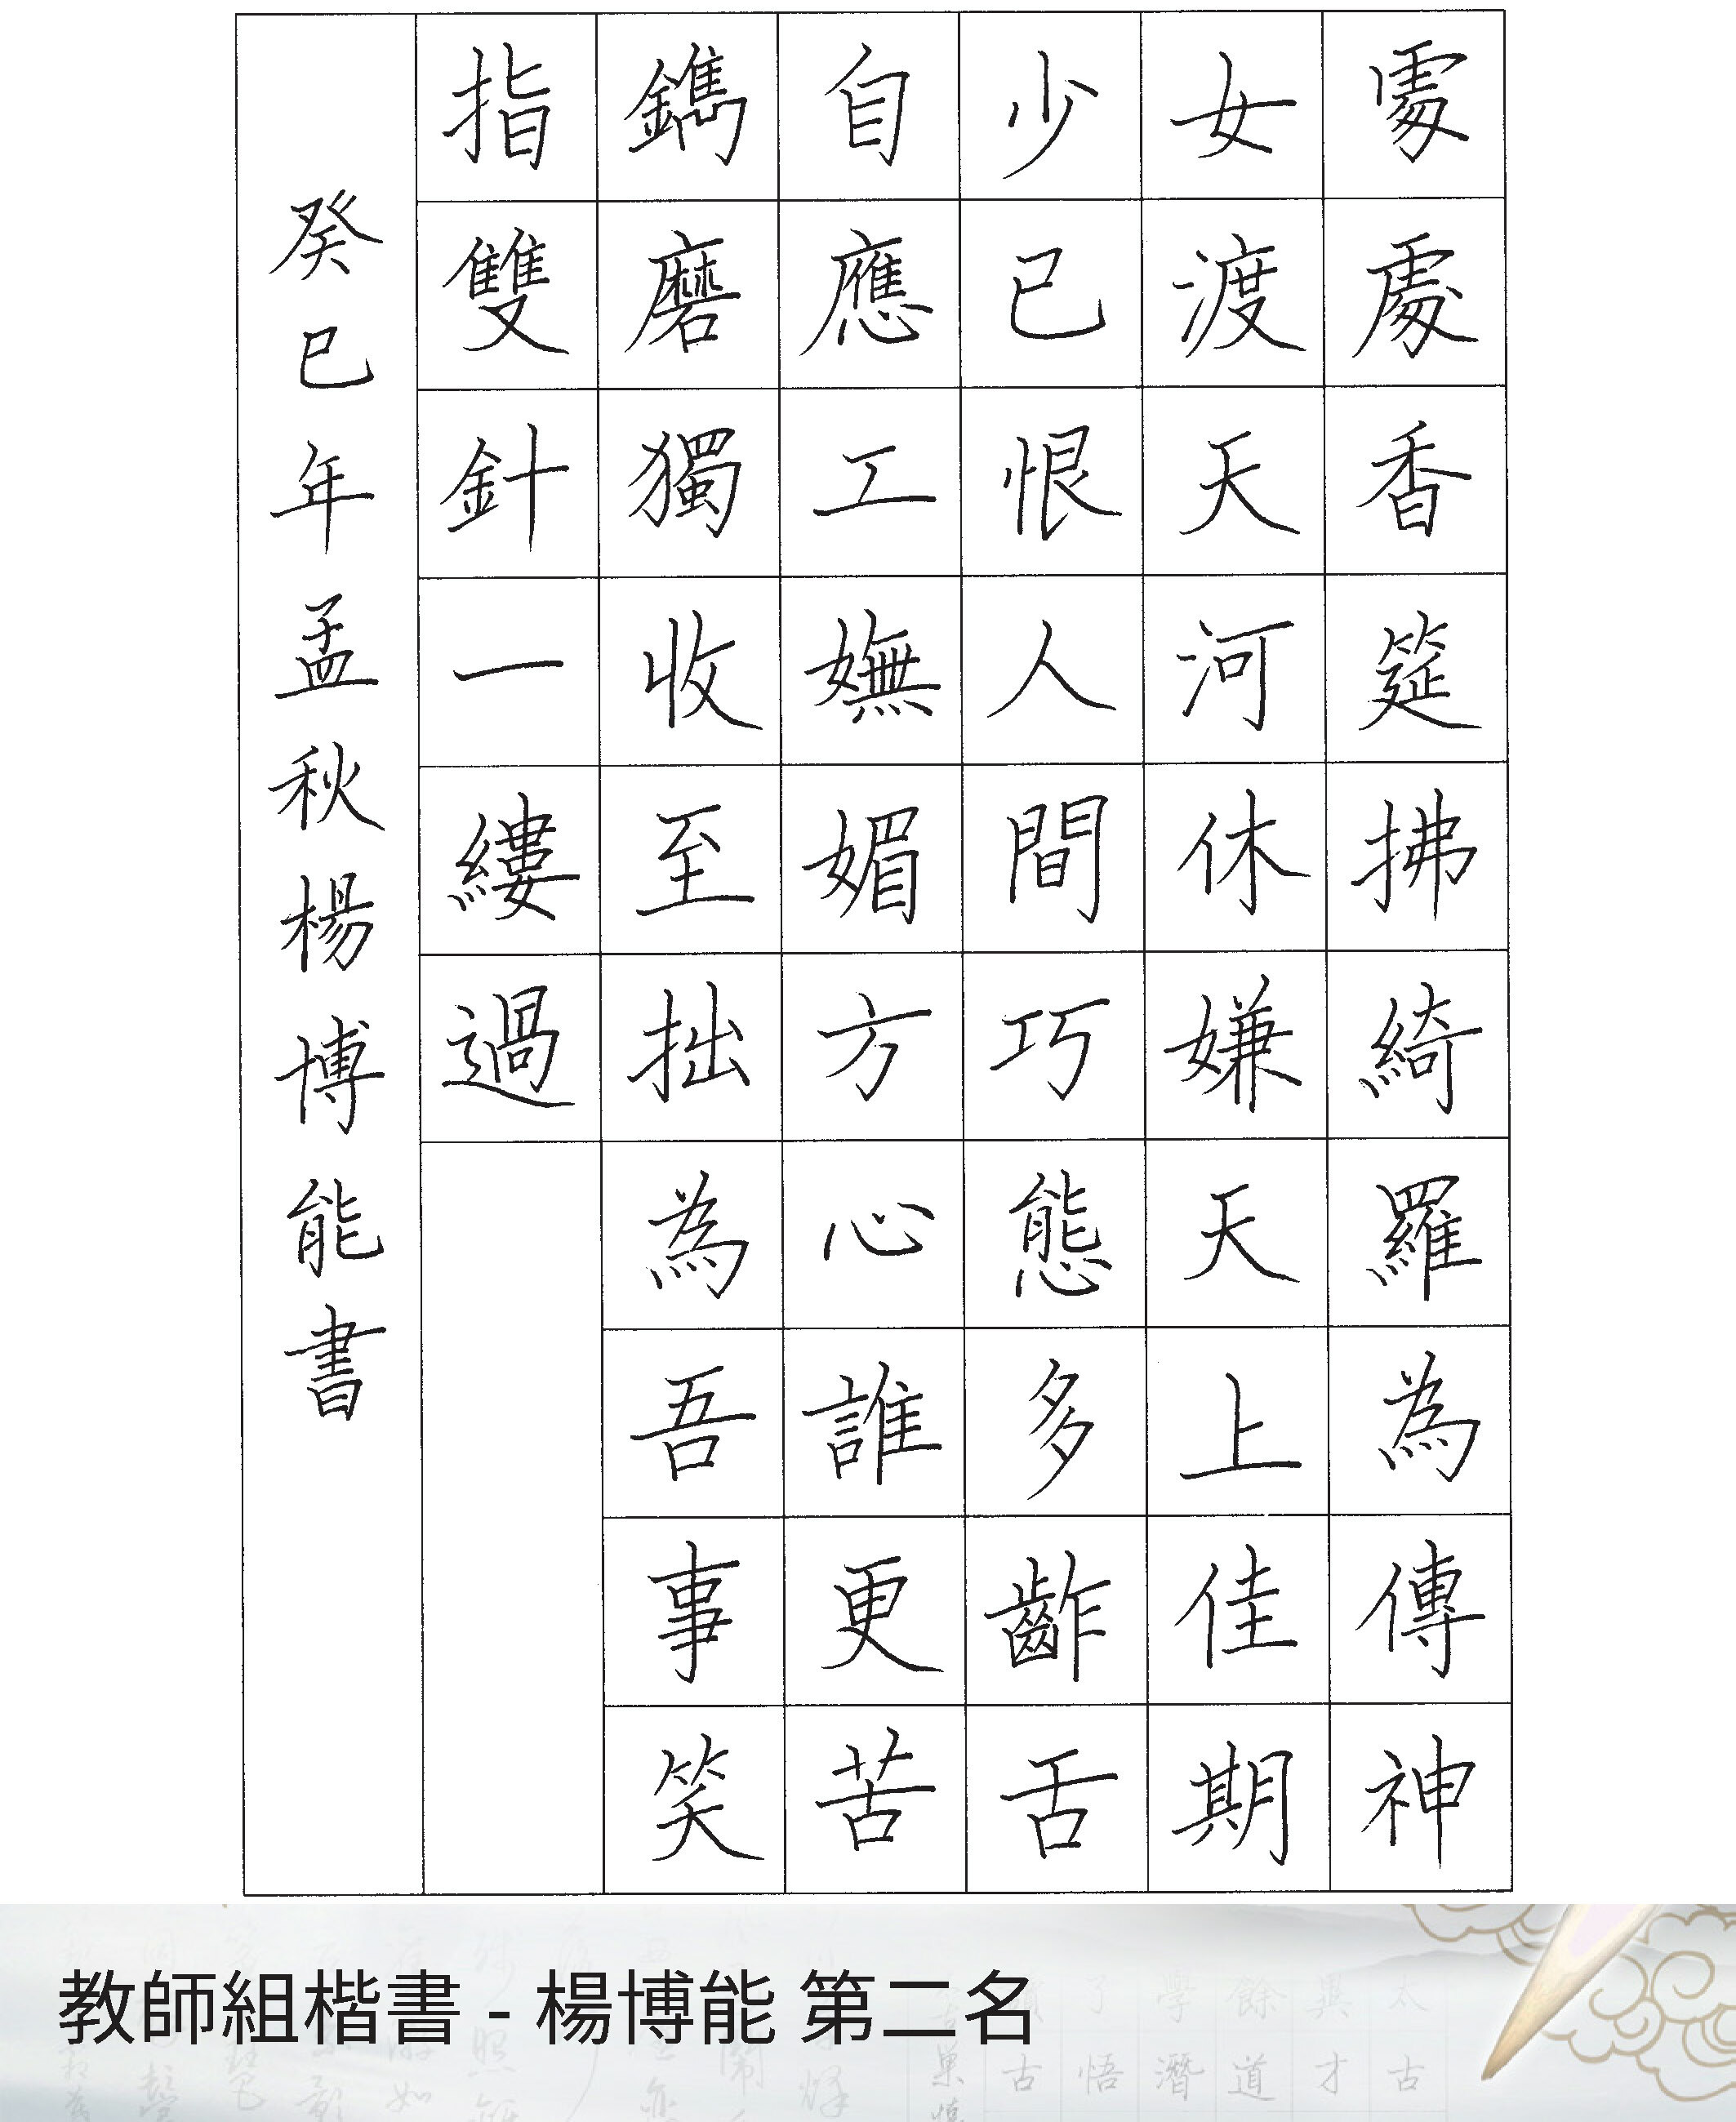 處處香筵拂綺羅為傳神
女渡天河休嫌天上佳期
少已恨人間巧態多齚舌
自應工嫵媚方心誰更苦
鐫磨獨收至拙為吾事笑
指雙針一縷過
癸巳年孟秋楊博能書
教師組楷書 - 楊博能 第二名